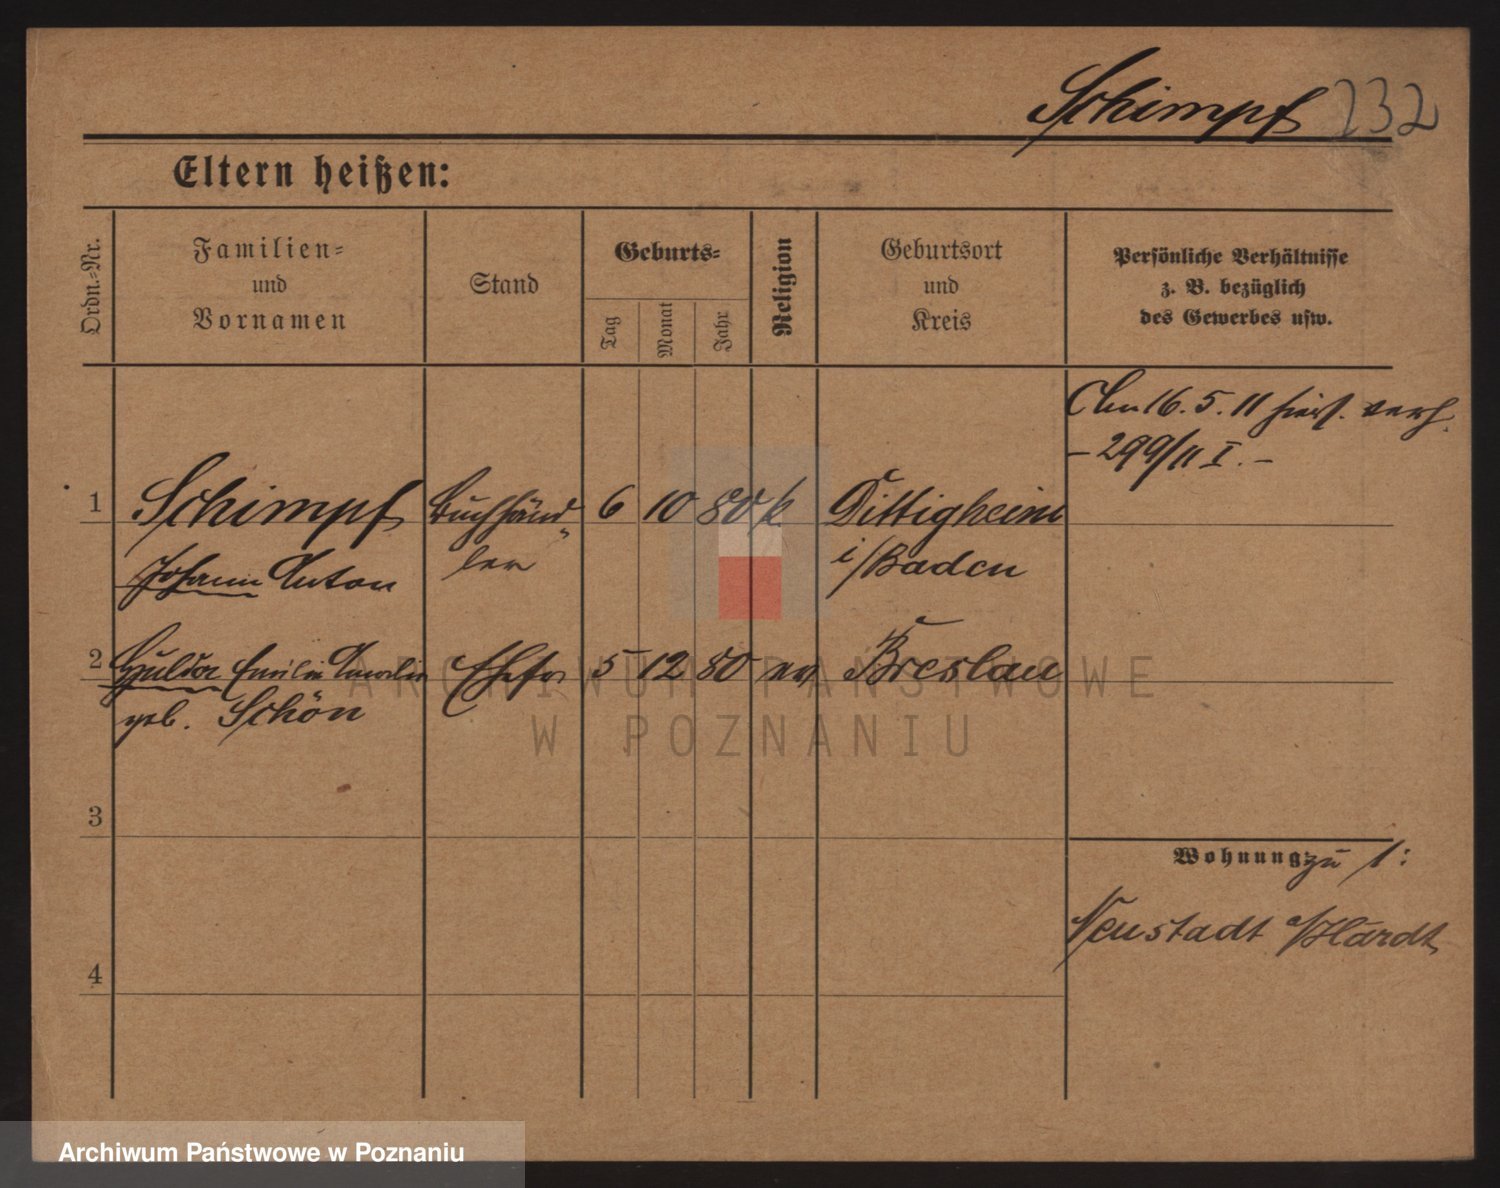 Schimpf 232
Eltern heißen:
Ordn.-Nr.
Familien-
und
Vornamen
Stand
Geburts-
Tag
Monat
Jahr
Religion
Geburtsort
und
Kreis
Persönliche Verhältnisse
z. B. bezüglich
des Gewerbes usw.
Am 16. 5. 11 hies. verh.
- 299/11 I. -
1 Schimpf Buchhänd- 6 10 80 k Dittigheim
Johann Anton ler i/Baden
2 Hulda Emilie Amalie Ehefr 5 12 80 ev Breslau
geb. Schön
3
Wohnung zu 1:
Neustadt a/Hardt
4
ARCHIWUM PAŃSTWOWE
W POZNANIU
Archiwum Państwowe w Poznaniu